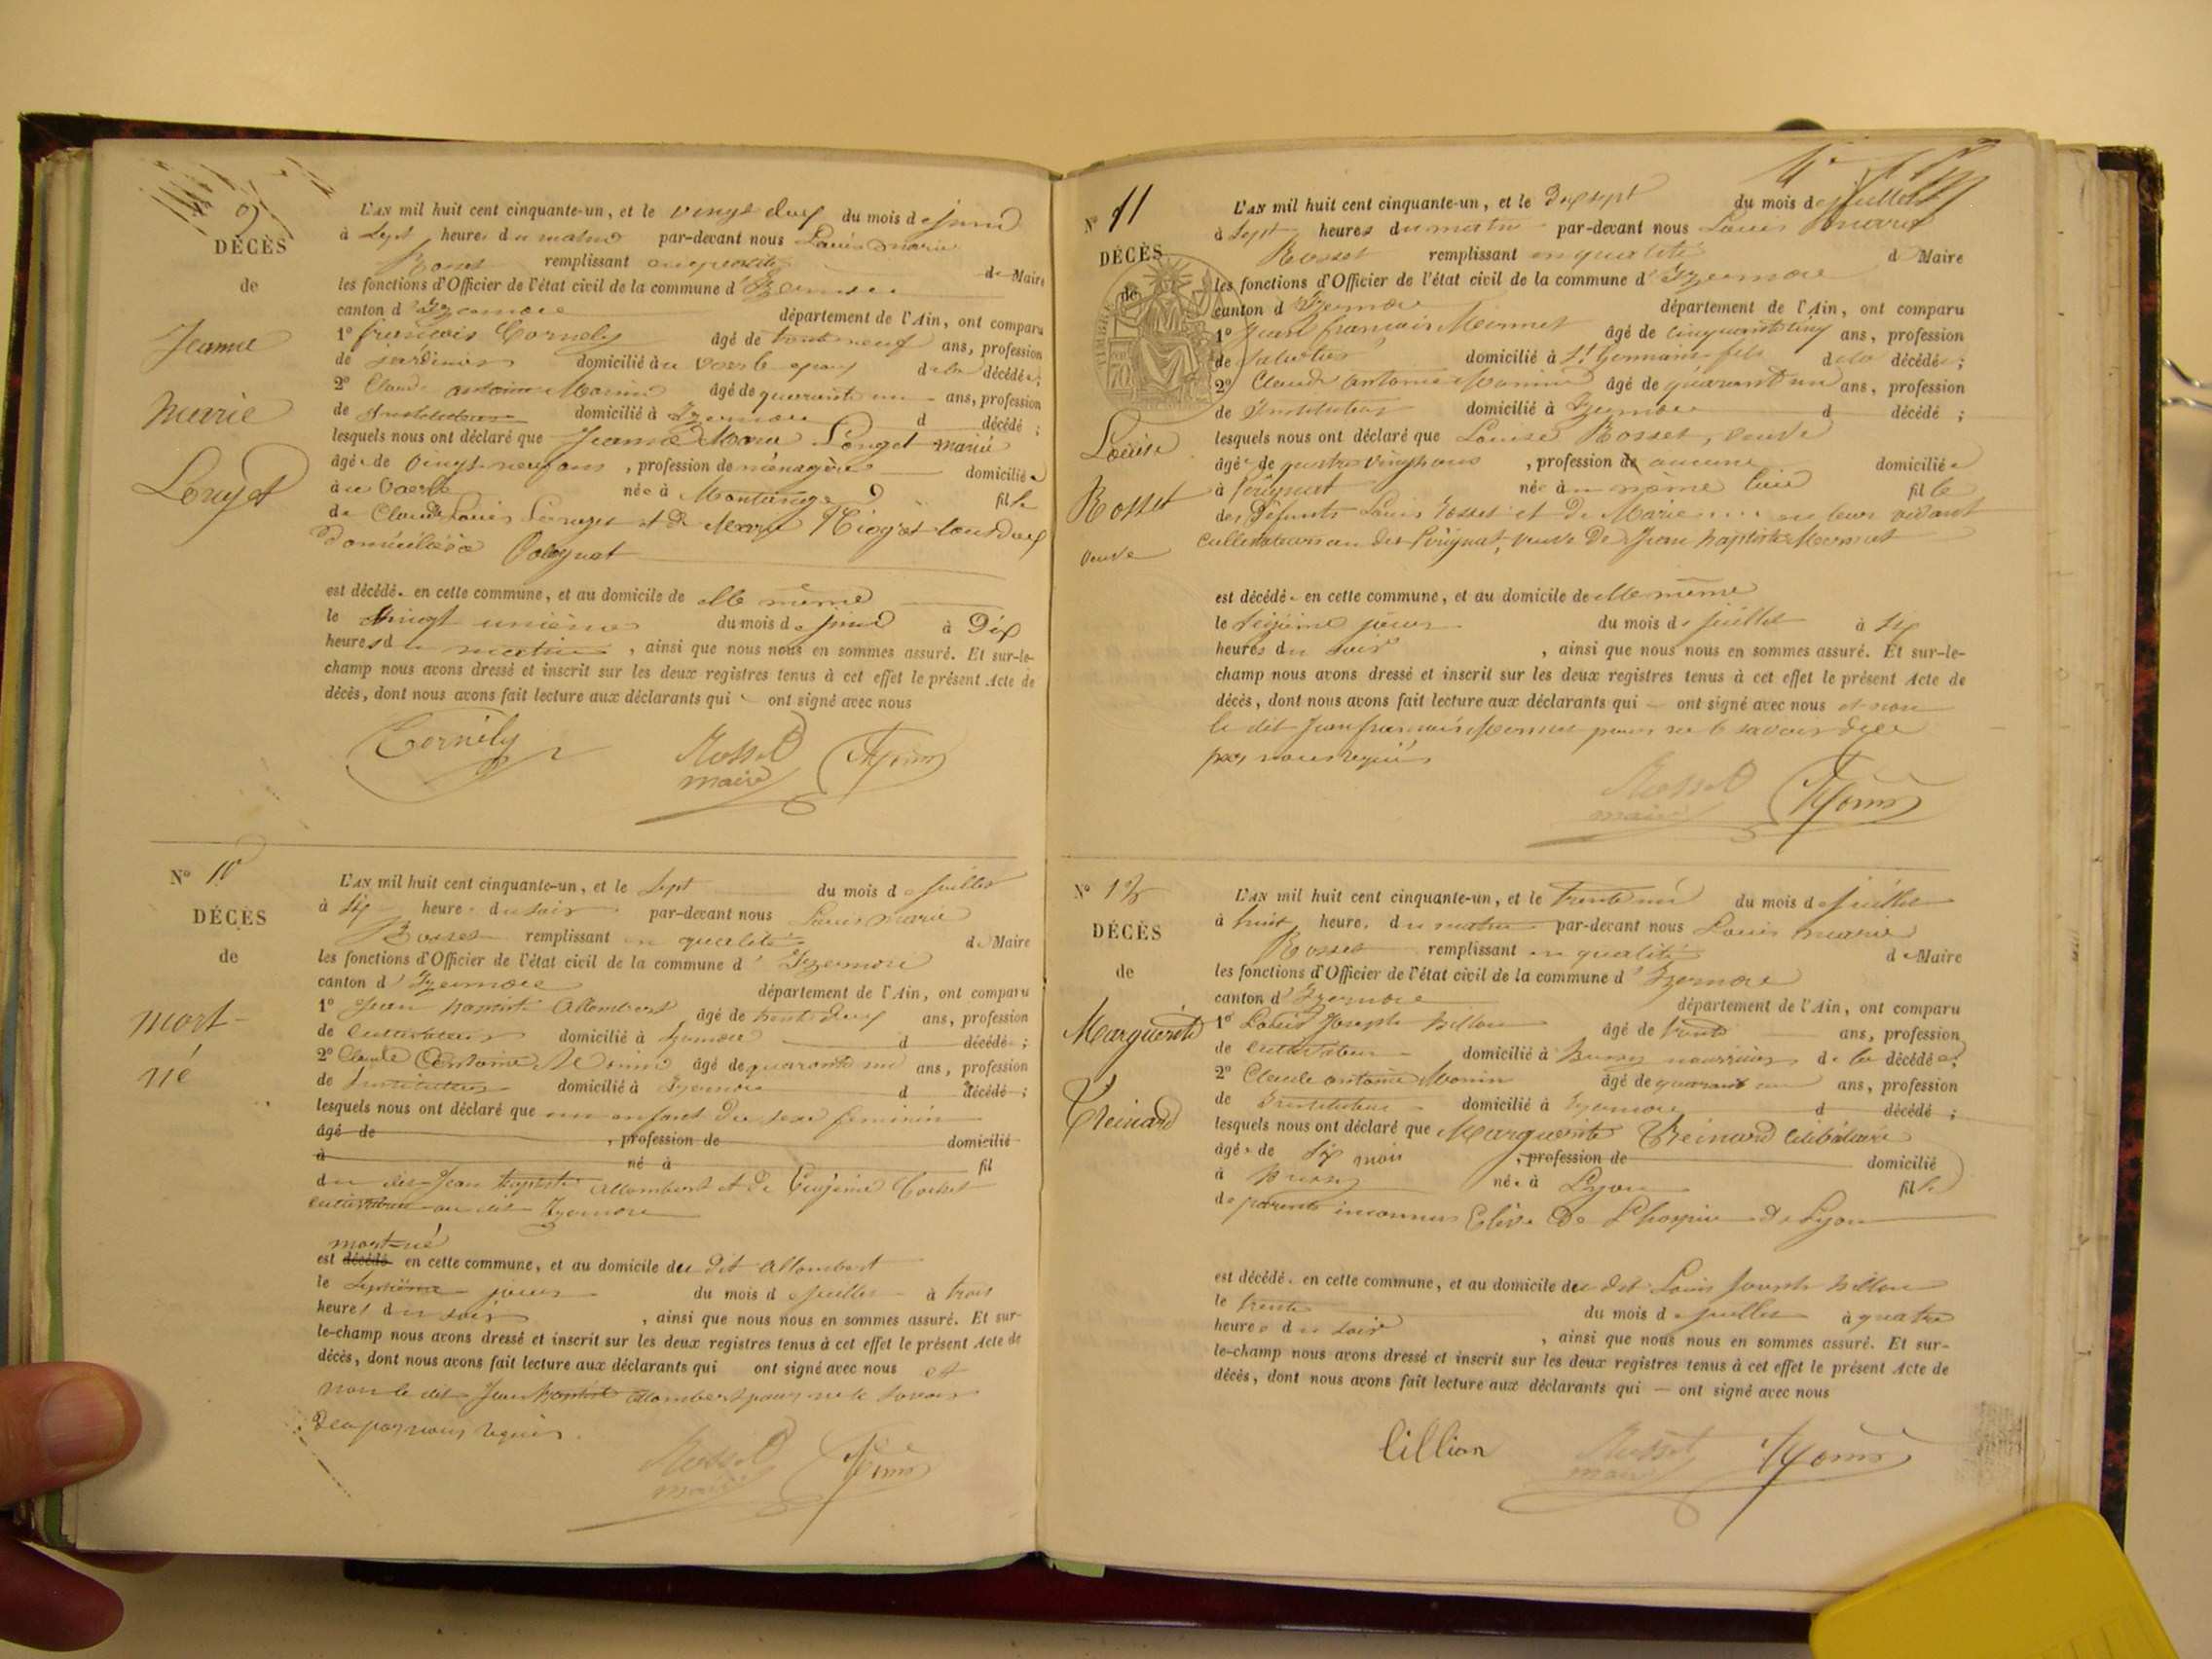 9
DÉCÈS
de
Jeanne
marie
Louget
L'AN mil huit cent cinquante-un, et le vingt deux du mois de juin
à sept heures du matin par-devant nous Louis marie
Rosset remplissant en qualité de Maire
les fonctions d'Officier de l'état civil de la commune d'Izernore
canton d'Izernore département de l'Ain, ont comparu
1° françois Cornely âgé de trente neuf ans, profession
de jardinier domicilié à époux de la décédée;
2° Claude antoine Monin âgé de quarante un ans, profession
de Instituteur domicilié à Izernore d décédé ;
lesquels nous ont déclaré que Jeanne Marie Louget mariée
âgée de vingt neuf ans, profession de ménagère domiciliée
née à fille
de Claude Louis Louget et de Marie tous deux
domiciliés à Volognat
est décédée en cette commune, et au domicile de elle même
le vingt unième du mois de juin à Dix
heures du matin, ainsi que nous nous en sommes assuré. Et sur-le-
champ nous avons dressé et inscrit sur les deux registres tenus à cet effet le présent Acte de
décès, dont nous avons fait lecture aux déclarants qui ont signé avec nous
Cornély Rosset Monin
maire
N° 10
DÉCÈS
de
mort-
né
L'AN mil huit cent cinquante-un, et le sept du mois de juillet
à six heures du soir par-devant nous Louis marie
Rosset remplissant en qualité de Maire
les fonctions d'Officier de l'état civil de la commune d'Izernore
canton d'Izernore département de l'Ain, ont comparu
1° Jean baptiste Allombert âgé de trente deux ans, profession
de cultivateur domicilié à Izernore d décédé ;
2° Claude Antoine Monin âgé de quarante un ans, profession
de Instituteur domicilié à Izernore d décédé ;
lesquels nous ont déclaré que un enfant du sexe féminin
âgé de , profession de domicilié
à né à fil
du dit Jean baptiste Allombert et de Eugénie Cochet
cultivateur au dit Izernore
mort-né
est décédé en cette commune, et au domicile du dit Allombert
le septième jour du mois de juillet à trois
heures du soir, ainsi que nous nous en sommes assuré. Et sur-
le-champ nous avons dressé et inscrit sur les deux registres tenus à cet effet le présent Acte de
décès, dont nous avons fait lecture aux déclarants qui ont signé avec nous et
non le dit Jean baptiste Allombert pour ne le savoir
de ce par nous requis.
Rosset Monin
maire
N° 11
DÉCÈS
de
Louise
Rosset
veuve
L'AN mil huit cent cinquante-un, et le dix sept du mois de juillet
à sept heures du matin par-devant nous Louis marie
Rosset remplissant en qualité de Maire
les fonctions d'Officier de l'état civil de la commune d'Izernore
canton d'Izernore département de l'Ain, ont comparu
1° Jean françois Mermet âgé de cinquante cinq ans, profession
de domicilié à St Germain fils de la décédée ;
2° Claude antoine Monin âgé de quarante un ans, profession
de Instituteur domicilié à Izernore d décédé ;
lesquels nous ont déclaré que Louise Rosset, veuve
âgée de quatre vingts ans, profession de aucune domiciliée
à Perignat née à même lieu fille
des Défunts Louis Rosset et de Marie en leur vivant
cultivateurs au dit Perignat, veuve de Jean baptiste Mermet
est décédée en cette commune, et au domicile de elle même
le seizième jour du mois de juillet à six
heures du soir, ainsi que nous nous en sommes assuré. Et sur-le-
champ nous avons dressé et inscrit sur les deux registres tenus à cet effet le présent Acte de
décès, dont nous avons fait lecture aux déclarants qui ont signé avec nous et non
le dit Jean françois Mermet pour ne le savoir de ce
par nous requis
Rosset Monin
maire
N° 12
DÉCÈS
de
Marguerite
Reinard
L'AN mil huit cent cinquante-un, et le trente un du mois de juillet
à huit heures du matin par-devant nous Louis marie
Rosset remplissant en qualité de Maire
les fonctions d'Officier de l'état civil de la commune d'Izernore
canton d'Izernore département de l'Ain, ont comparu
1° Louis Joseph billon âgé de trente ans, profession
de cultivateur domicilié à Bussy nourricier de la décédée;
2° Claude antoine Monin âgé de quarante un ans, profession
de Instituteur domicilié à Izernore d décédé ;
lesquels nous ont déclaré que Marguerite Reinard célibataire
âgée de six mois, profession de domicilié
à Bussy née à Lyon fille
de parents inconnus Elève de l'hospice de Lyon
est décédée en cette commune, et au domicile du dit Louis Joseph billon
le trente du mois de juillet à quatre
heures du soir, ainsi que nous nous en sommes assuré. Et sur-
le-champ nous avons dressé et inscrit sur les deux registres tenus à cet effet le présent Acte de
décès, dont nous avons fait lecture aux déclarants qui — ont signé avec nous
billion Rosset Monin
maire